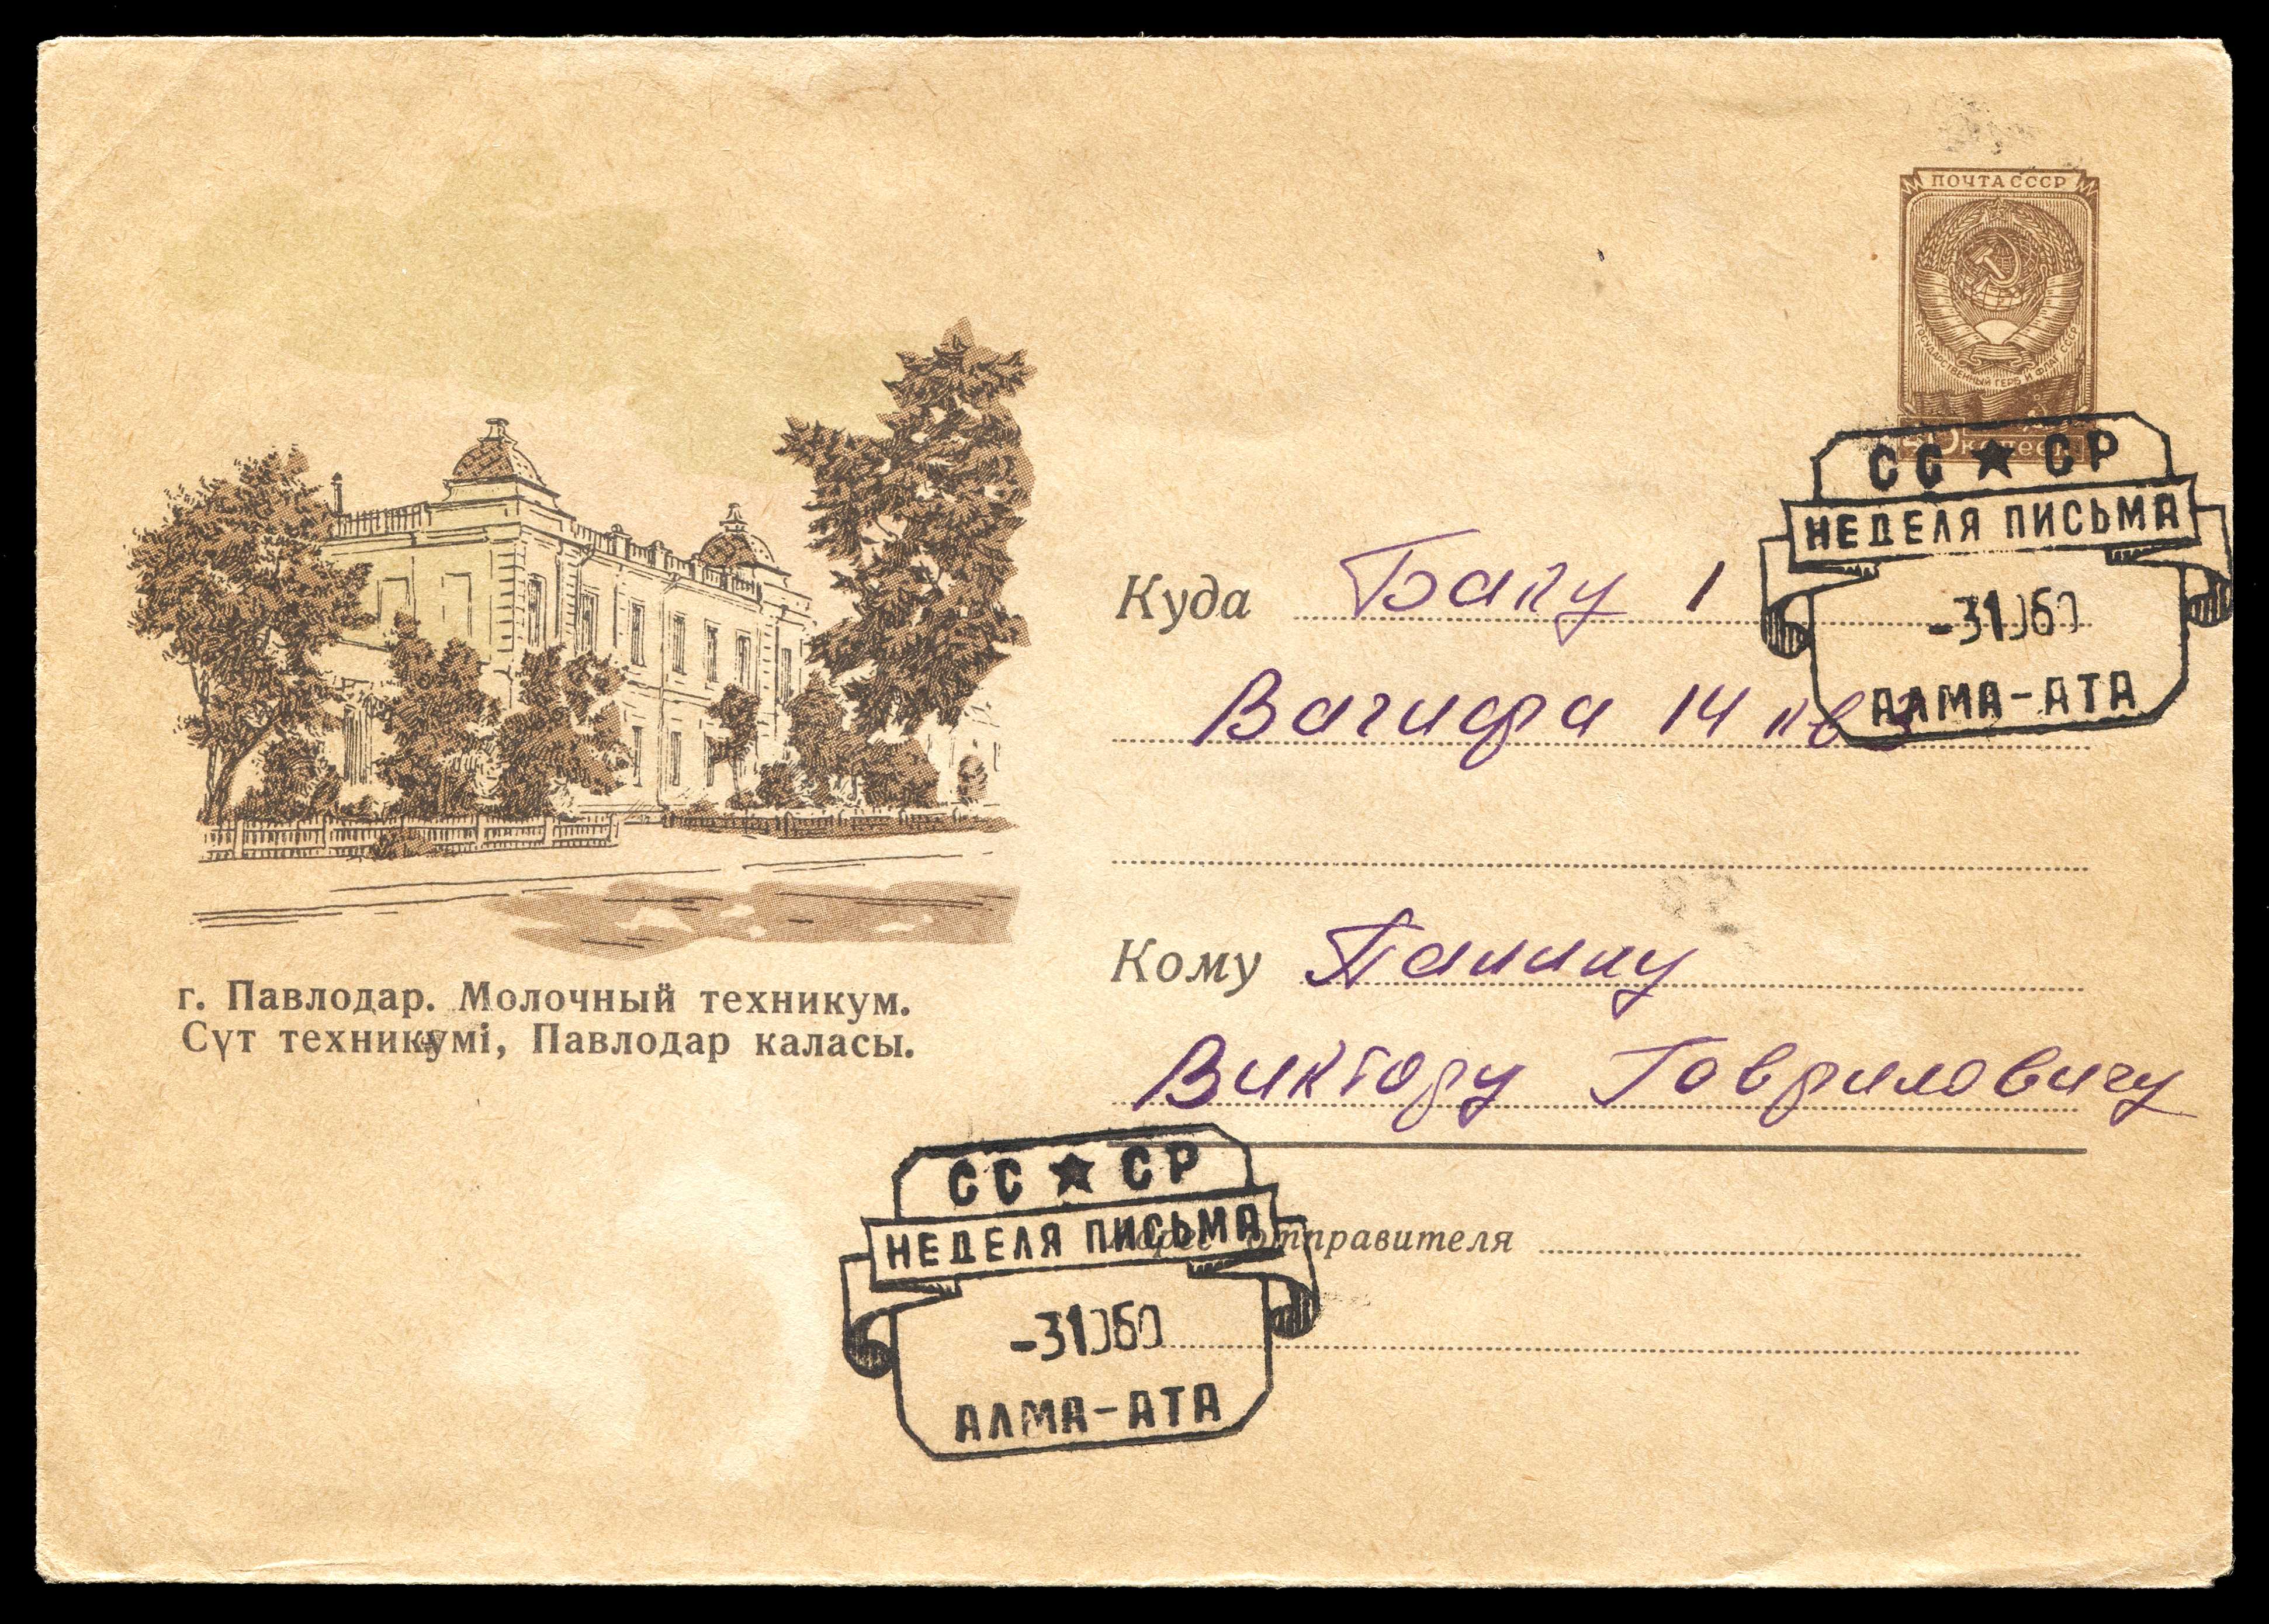 ПОЧТА СССР
ГОСУДАРСТВЕННЫЙ ГЕРБ И ФЛАГ СССР
40 копеек
СС★СР
НЕДЕЛЯ ПИСЬМА
-31060
АЛМА-АТА
Куда Баку 1
Вагифа 14 кв 3
Кому
Виктору Гавриловичу
г. Павлодар. Молочный техникум.
Сүт техникумі, Павлодар каласы.
СС★СР
НЕДЕЛЯ ПИСЬМА
-31060
АЛМА-АТА
Адрес отправителя